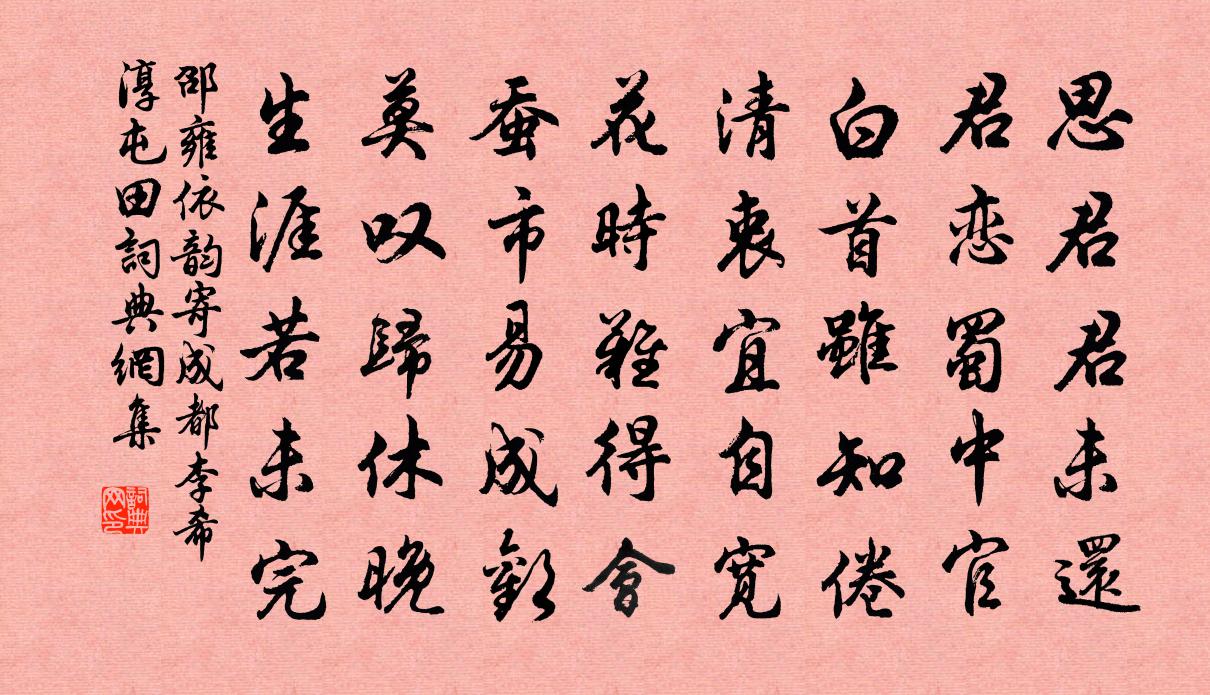 思君君未還
君恋蜀中官
白首雖知倦
清衷宜自寛
花時難得會
蚕市易成歡
莫叹歸休晚
生涯若未完
邵雍依韵寄成都李希
淳屯田詞典網集
詞典
网印